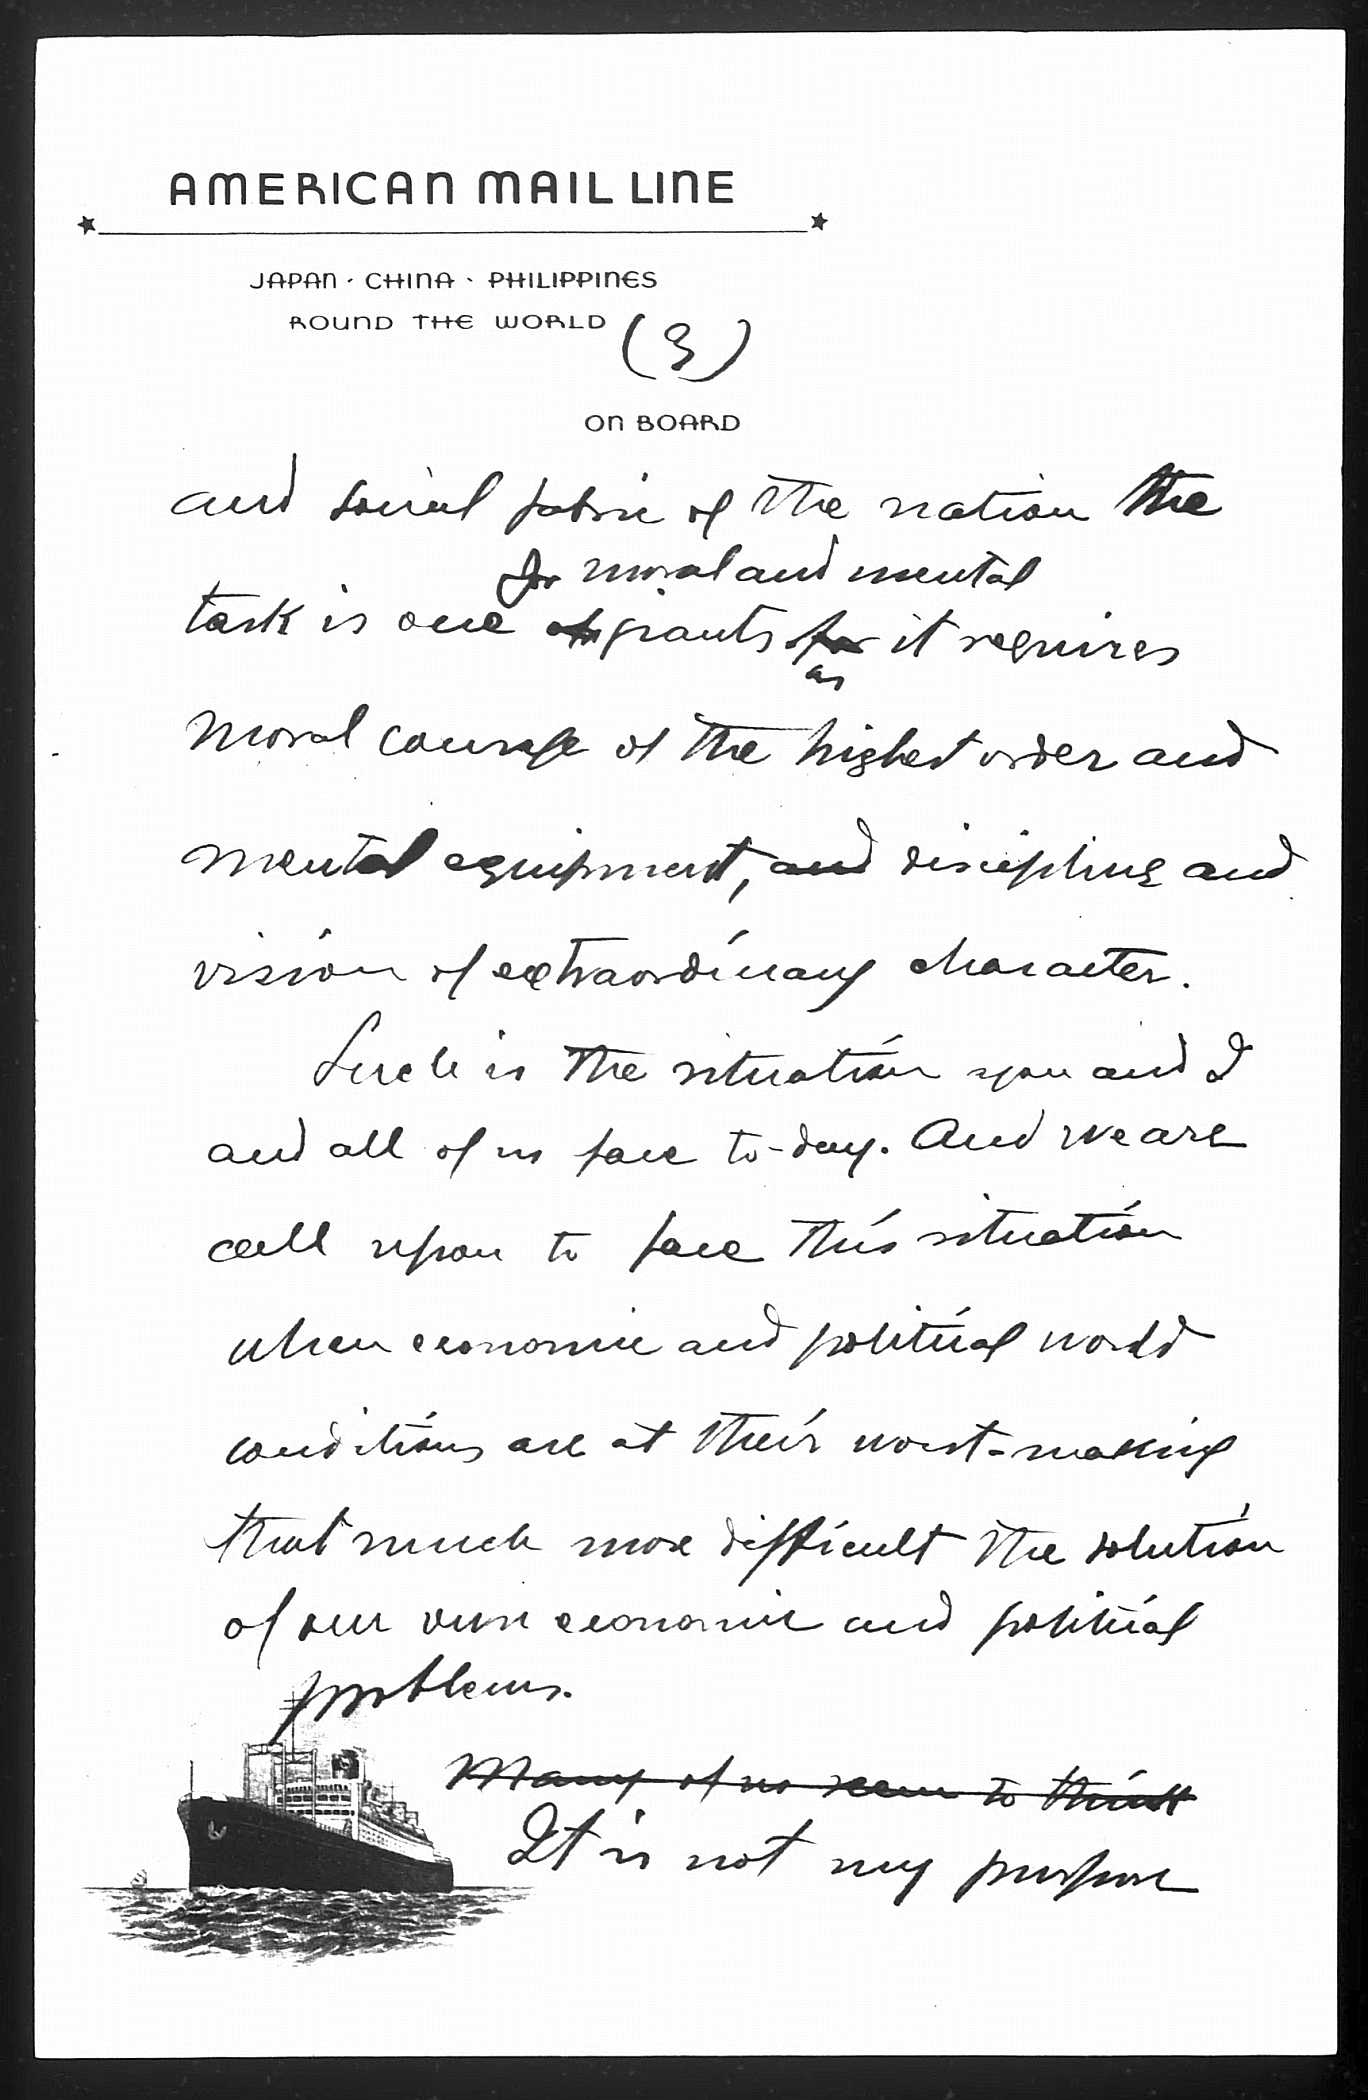 AMERICAN MAIL LINE
JAPAN · CHINA · PHILIPPINES
ROUND THE WORLD
(3)
ON BOARD
and social fabric of the nation the
for moral and mental
task is one of giants for it requires
as
moral courage of the highest order and
mental equipment, and discipline and
vision of extraordinary character.
Such is the situation you and I
and all of us face to-day. And we are
call upon to face this situation
when economic and political world
conditions are at their worst - making
that much more difficult the solution
of our own economic and political
problems.
Many of us seem to think
It is not my purpose